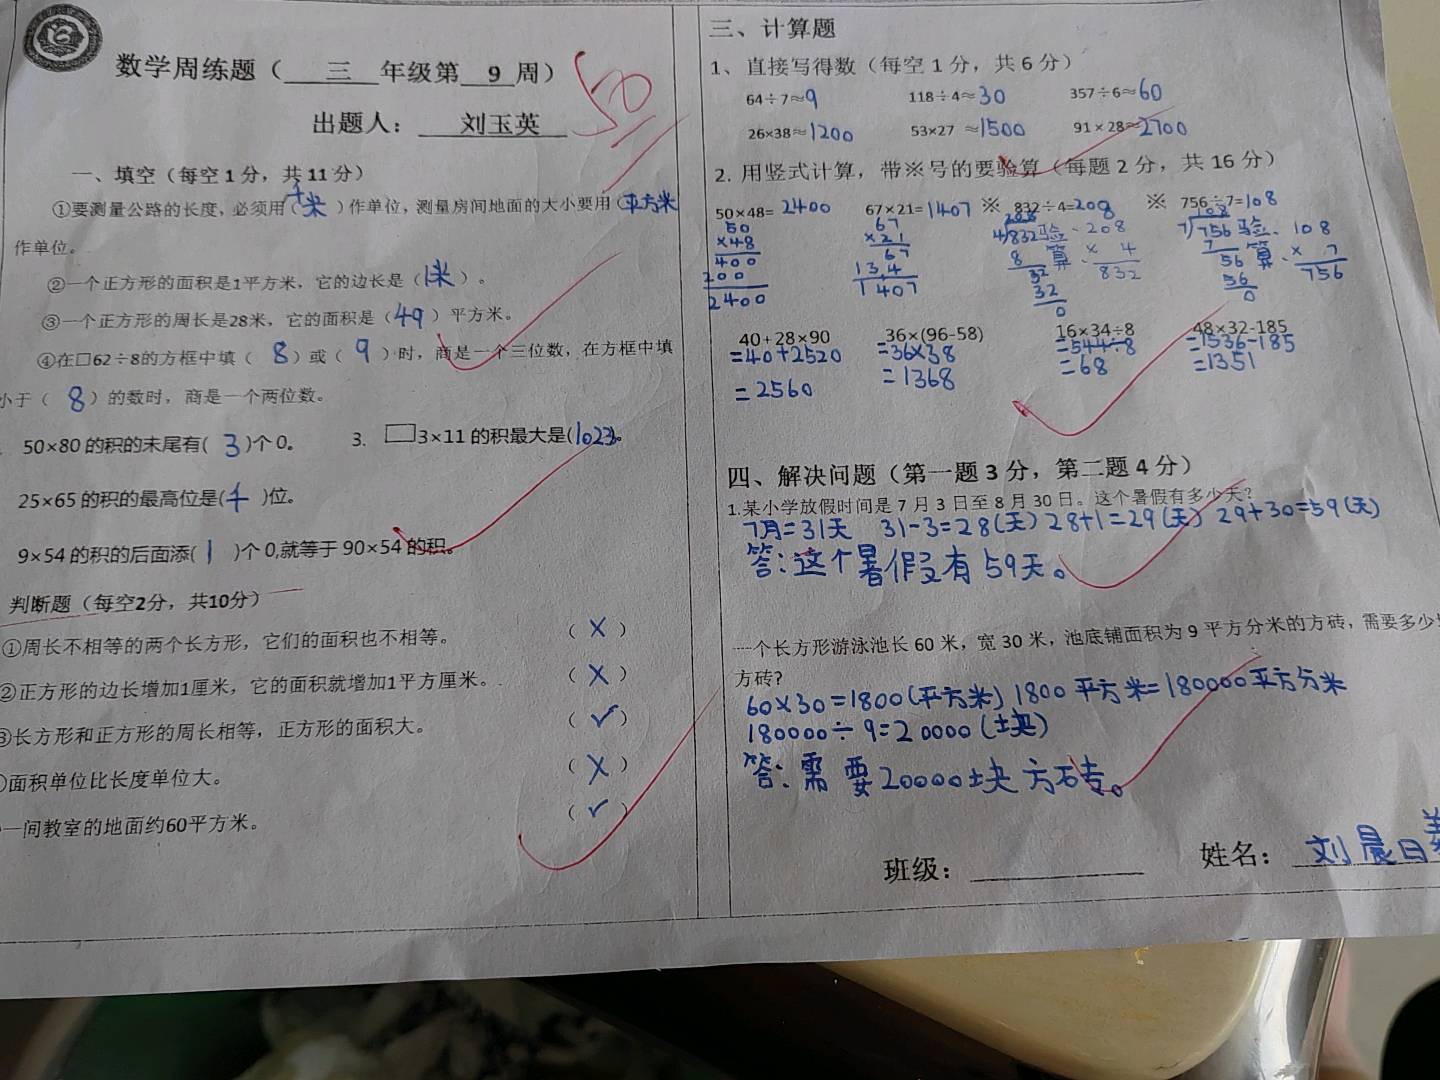 数学周练题（ 三 年级第 9 周）
50
出题人： 刘玉英
一、填空（每空1分，共11分）
①要测量公路的长度，必须用（千米）作单位，测量房间地面的大小要用（平方米
作单位。
②一个正方形的面积是1平方米，它的边长是（1米）。
③一个正方形的周长是28米，它的面积是（49）平方米。
④在□62÷8的方框中填（ 8 ）或（ 9 ）时，商是一个三位数，在方框中填
小于（ 8 ）的数时，商是一个两位数。
50×80 的积的末尾有( 3 )个 0。 3. □3×11 的积最大是(1023)。
25×65 的积的最高位是(千 )位。
9×54 的积的后面添( 1 )个 0,就等于 90×54 的积。
判断题（每空2分，共10分）
①周长不相等的两个长方形，它们的面积也不相等。 （ × ）
②正方形的边长增加1厘米，它的面积就增加1平方厘米。 （ × ）
③长方形和正方形的周长相等，正方形的面积大。 （ ✓ ）
面积单位比长度单位大。 （ × ）
一间教室的地面约60平方米。 （ ✓ ）
三、计算题
1、直接写得数（每空 1 分，共 6 分）
64÷7≈9 118÷4≈30 357÷6≈60
26×38≈1200 53×27 ≈1500 91×28≈2700
2. 用竖式计算，带※号的要验算（每题 2 分，共 16 分）
50×48= 2400 67×21=1407 ※ 832÷4=208 ※ 756÷7=108
50 67 208 108
×48 ×21 4/832 验、208 7/756 验、108
400 67 8 算、× 4 7 算、× 7
200 134 32 832 56 756
2400 1407 32 56
0 0
40+28×90 36×(96-58) 16×34÷8 48×32-185
=40+2520 =36×38 =544÷8 =1536-185
=2560 =1368 =68 =1351
四、解决问题（第一题 3 分，第二题 4 分）
1.某小学放假时间是 7 月 3 日至 8 月 30 日。这个暑假有多少天？
7月=31天 31-3=28(天) 28+1=29(天) 29+30=59(天)
答：这个暑假有59天。
一个长方形游泳池长 60 米，宽 30 米，池底铺面积为 9 平方分米的方砖，需要多少
方砖?
60×30=1800(平方米) 1800平方米=180000平方分米
180000÷9=20000(块)
答：需要20000块方砖。
班级： 姓名： 刘晨曦